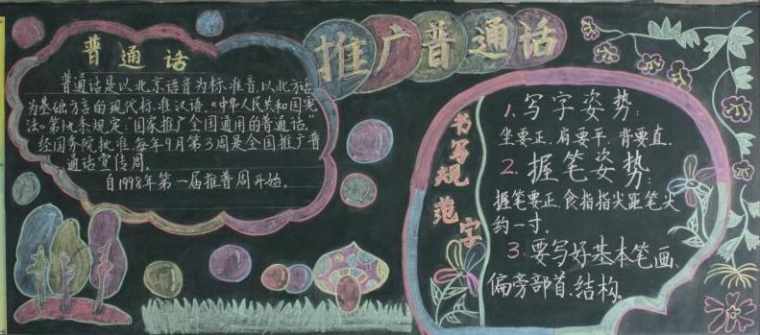 推广普通话
普通话
普通话是以北京语音为标准音,以北方话
为基础方言的现代标准汉语。《中华人民共和国宪
法》第19条规定:“国家推广全国通用的普通话。”
经国务院批准,每年9月第3周是全国推广普
通话宣传周。
自1998年第一届推普周开始。
书写规范字
1.写字姿势:
坐要正、肩要平、背要直.
2.握笔姿势:
握笔要正,食指指尖距笔尖
约一寸.
3.要写好基本笔画、
偏旁部首、结构.